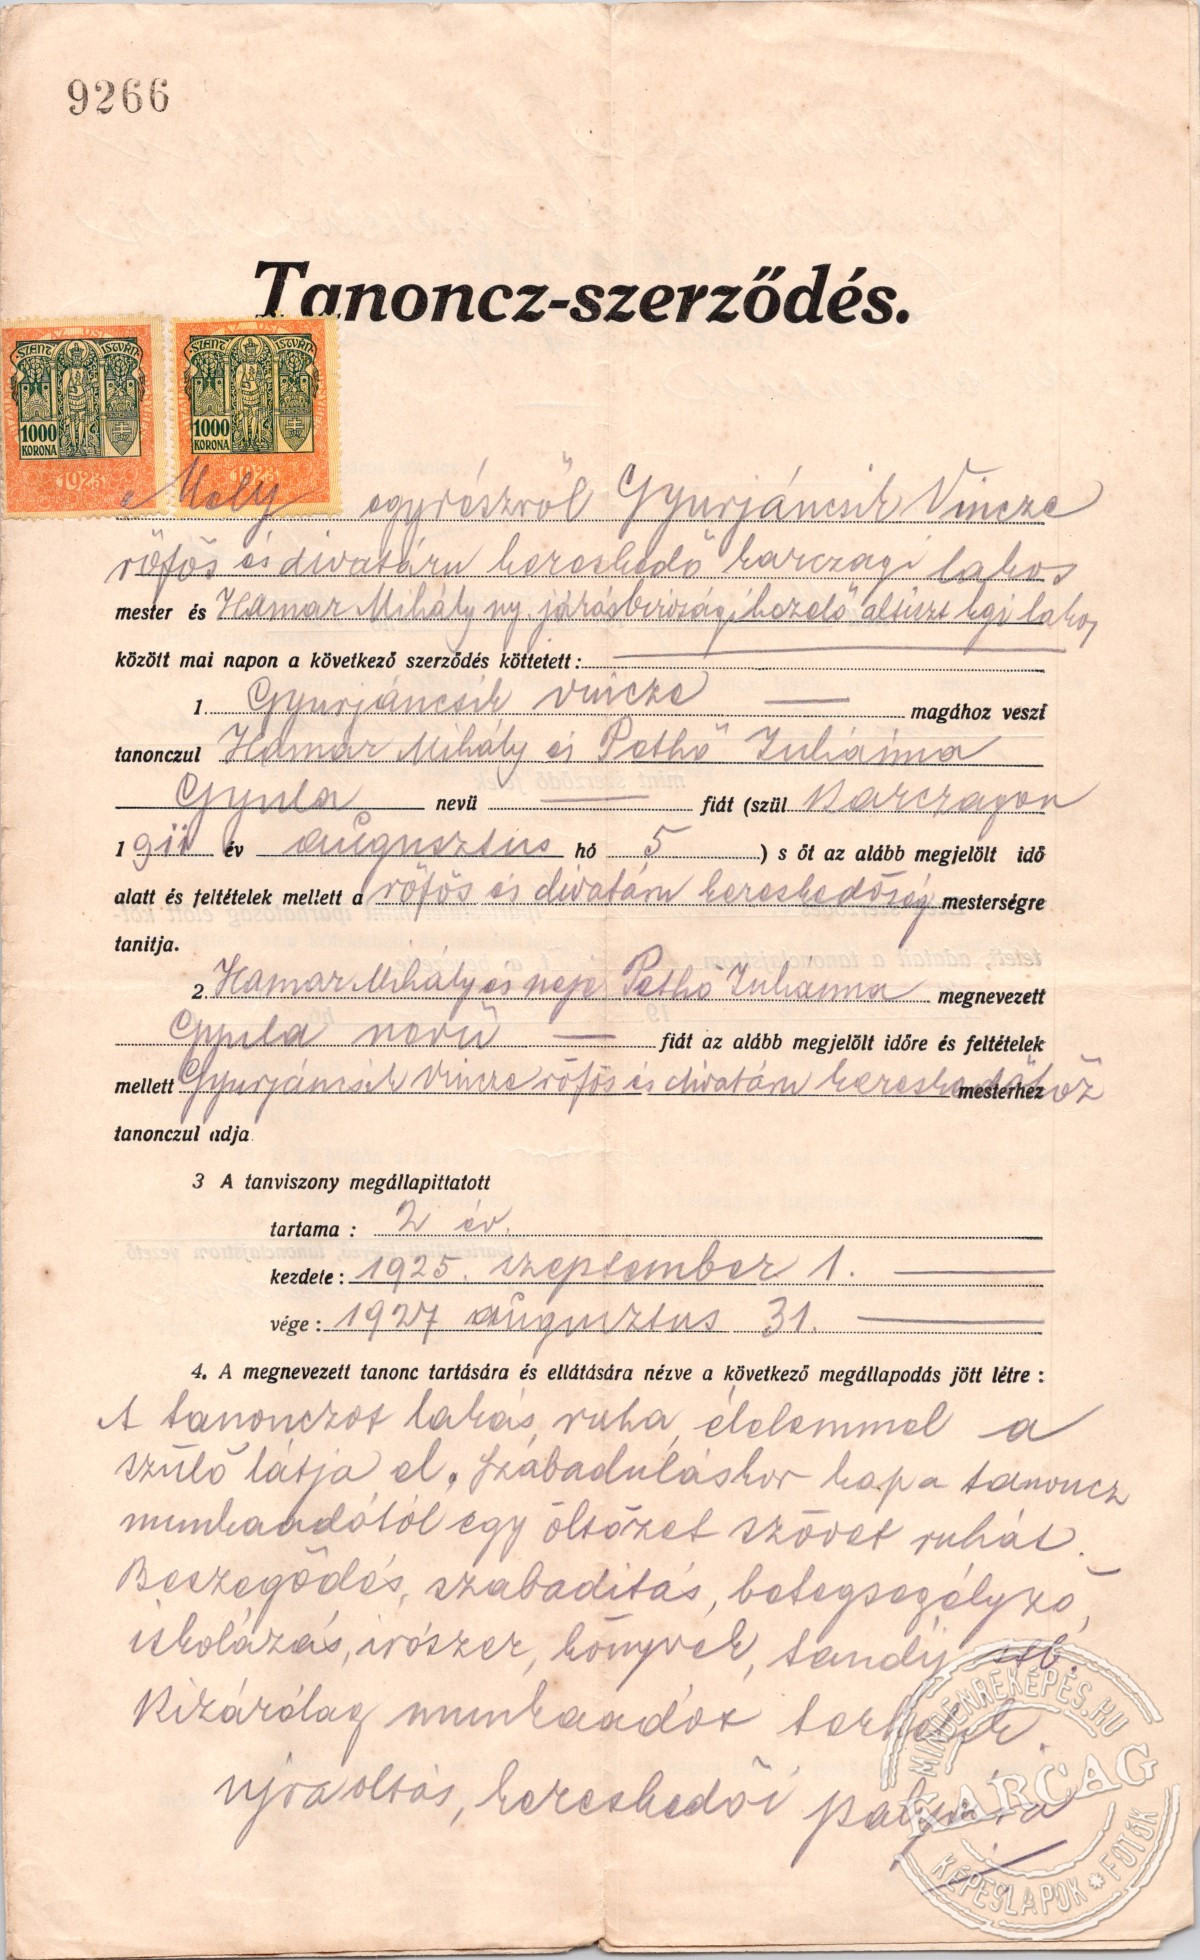 9266
Tanoncz-szerződés.
SZENT ISTVÁN
1000
KORONA
1923
SZENT ISTVÁN
1000
KORONA
1923
Mely egyrészről Gyurjáncsik Vincze
rőfös és divatáru kereskedő karczagi lakos
mester és Hamar Mihály ny. járásbirósági kezelő altiszt kgi lakos
között mai napon a következő szerződés köttetett:
1. Gyurjáncsik Vincze — magához veszi
tanonczul Hamar Mihály és Pethő Juliánna
Gyula nevü — fiát (szül Karczagon
1911 év augusztus hó 5 ) s őt az alább megjelölt idő
alatt és feltételek mellett a rőfös és divatáru kereskedőség mesterségre
tanitja.
2. Hamar Mihály és neje Pethő Julianna megnevezett
Gyula nevü — fiát az alább megjelölt időre és feltételek
mellett Gyurjáncsik Vincze rőfös és divatáru kereskedőhöz mesterhez
tanonczul adja
3 A tanviszony megállapittatott
tartama: 2 év.
kezdete: 1925. szeptember 1. —
vége: 1927 augusztus 31. —
4. A megnevezett tanonc tartására és ellátására nézve a következő megállapodás jött létre:
A tanonczot lakás, ruha, élelemmel a
szülő látja el. Szabaduláskor kap a tanoncz
munkaadótól egy öltözet szövet ruhát.
Beszegődés, szabaditás, betegsegélyző,
iskolázás, irószer, könyvek, tandij stb.
Kizárólag munkaadót terhelik.
ujraoltás, kereskedői pályára
MINDENREKÉPES.HU
KARCAG
KÉPESLAPOK * FOTÓK